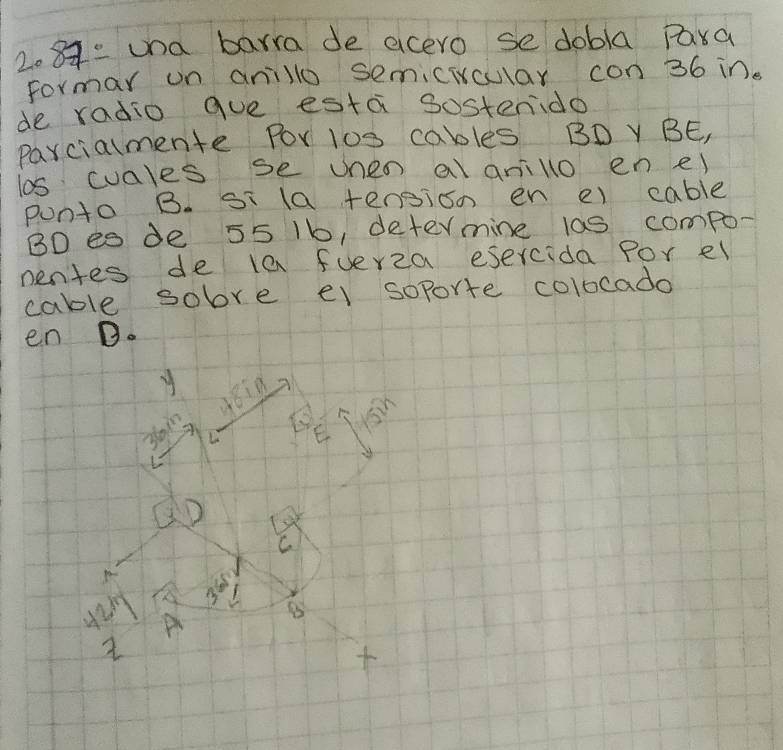 2.87= una barra de acero se dobla Para
Formar un anillo semicircular con 36 in.
de radio que está Sostenido
Parcialmente Por los cables BD Y BE,
los cuales se unen al anillo en el
Punto B. Si la tension en el cable
BD es de 55 lb, determine las compo-
nentes de la fuerza esercida Por el
cable sobre el soporte colocado
en D.
y
48in
36in
E
15in
D
C
42in
36in
A
B
z
x